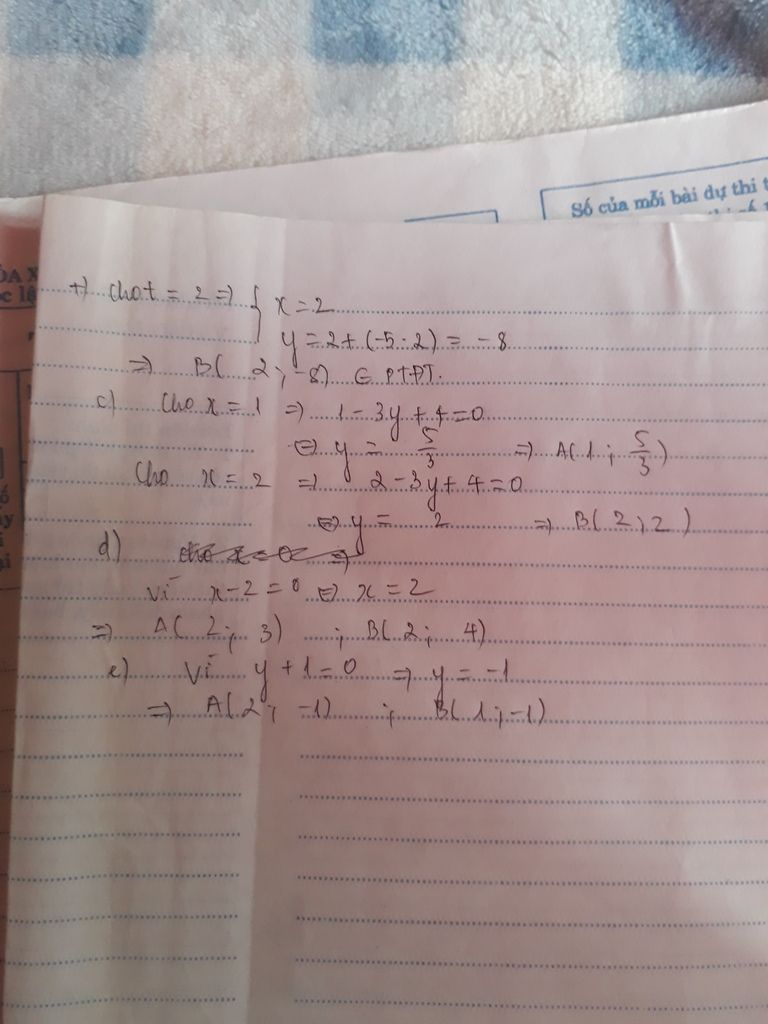 Số của mỗi bài dự thi t
ÓA X
+) Cho t = 2 => { x = 2
y = 2 + (-5 . 2) = -8
=> B( 2 ; -8) ∈ PTĐT.
c) Cho x = 1 => 1 - 3y + 4 = 0
⇔ y = 5/3 => A( 1 ; 5/3 )
Cho x = 2 => 2 - 3y + 4 = 0
⇔ y = 2 => B( 2 ; 2 )
d)
Vì x - 2 = 0 ⇔ x = 2
=> A( 2 ; 3) ; B( 2 ; 4)
e) Vì y + 1 = 0 => y = -1
=> A( 2 ; -1) ; B( 1 ; -1)